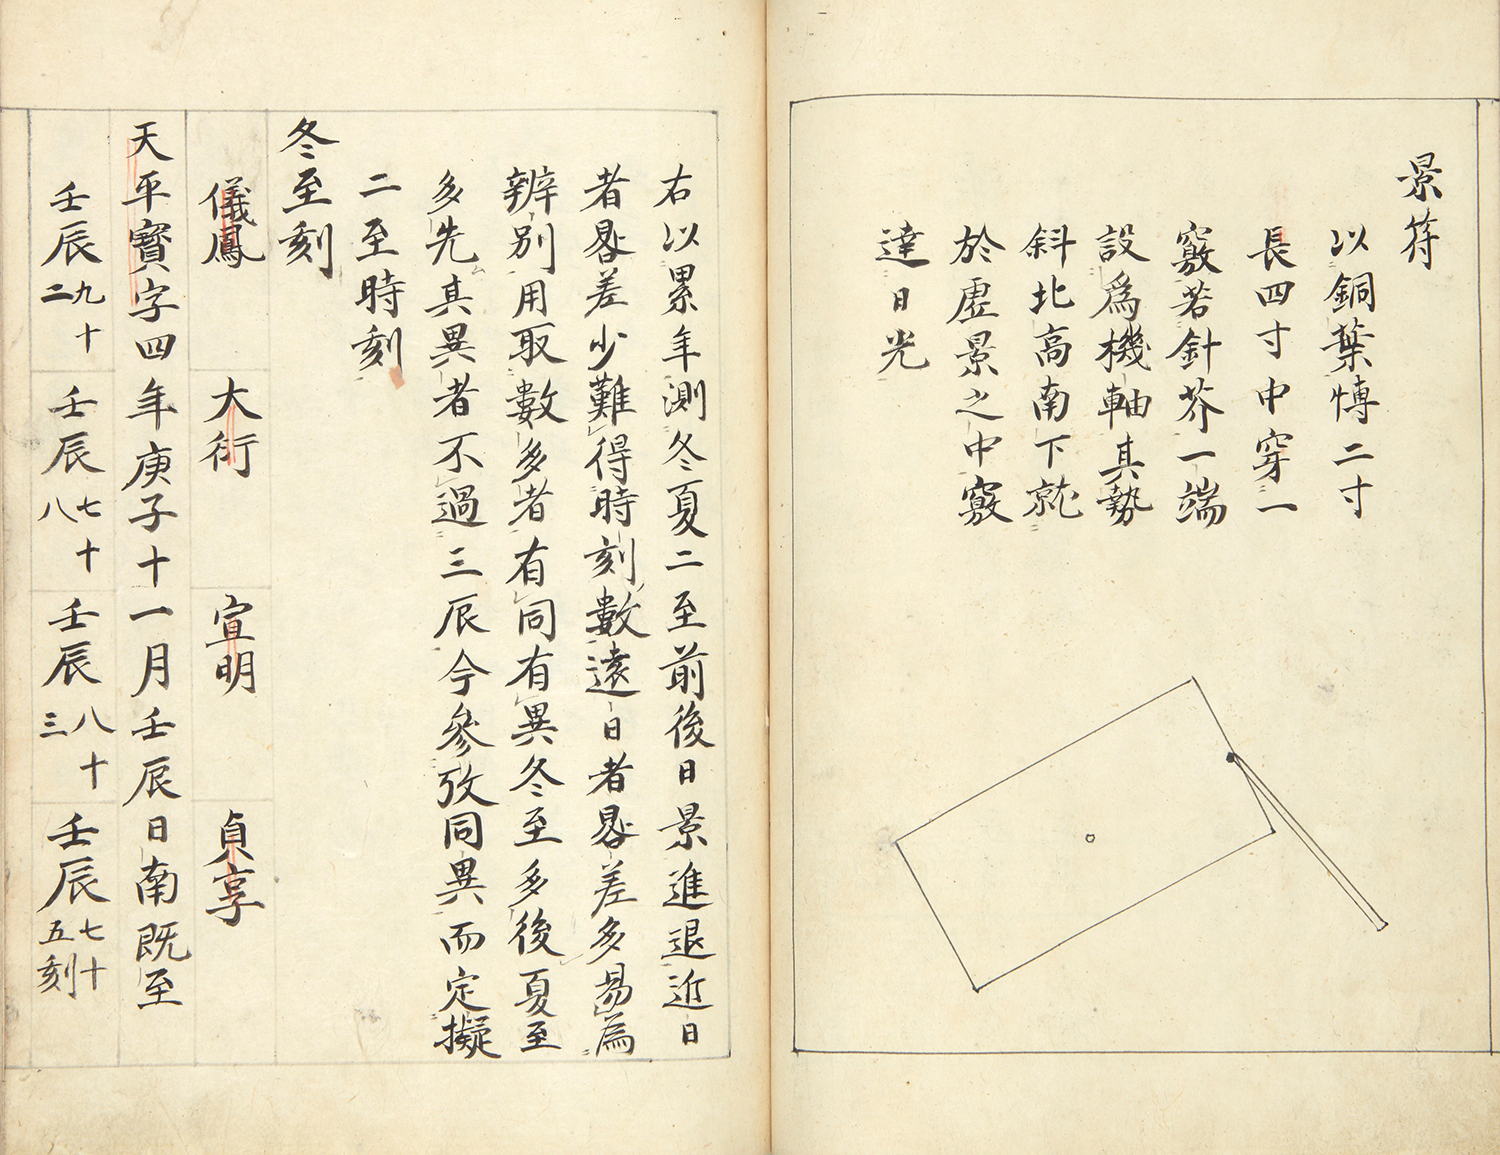 景符
以銅葉愽二寸
長四寸中穿一
竅若針芥一端
設爲機軸其勢
斜北高南下就
於虛景之中竅
達日光
右以累年測冬夏二至前後日景進退近日
者晷差少難得時刻數遠日者晷差多易爲
辨別用取數多者有同有異冬至多後夏至
多先其異者不過三辰今參攷同異而定擬
二至時刻
冬至刻
儀鳳 大衍 宣明 貞享
天平寶字四年庚子十一月壬辰日南既至
壬辰九十二 壬辰七十八 壬辰八十三 壬辰七十五刻